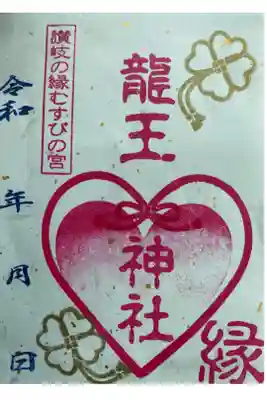 讃岐の縁むすびの宮
龍王神社
縁
令和 年 月 日